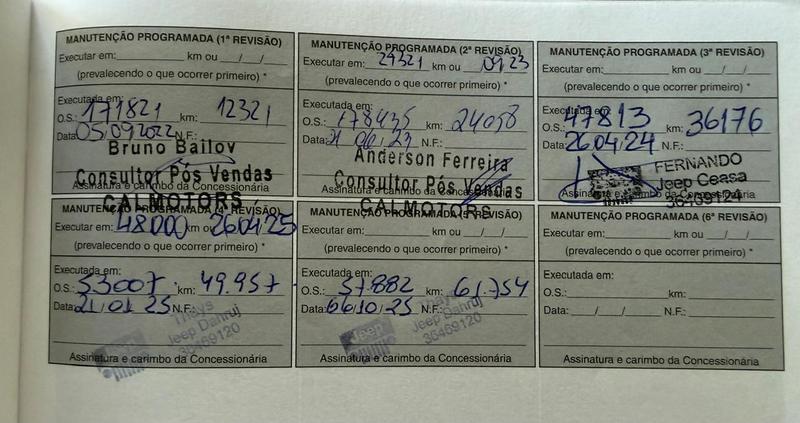 MANUTENÇÃO PROGRAMADA (1ª REVISÃO)
Executar em: km ou / /
(prevalecendo o que ocorrer primeiro) *
Executada em:
O.S.: 171821 km: 12321
Data: 05/09/2022 N.F.:
Bruno Bailov
Consultor Pós Vendas
Assinatura e carimbo da Concessionária
CALMOTORS
MANUTENÇÃO PROGRAMADA (2ª REVISÃO)
Executar em: 24321 km ou 09/23
(prevalecendo o que ocorrer primeiro) *
Executada em:
O.S.: 178435 km: 24098
Data: 21 06 23 N.F.:
Anderson Ferreira
Consultor Pós Vendas
CALMOTORS
MANUTENÇÃO PROGRAMADA (3ª REVISÃO)
Executar em: km ou / /
(prevalecendo o que ocorrer primeiro) *
Executada em:
O.S.: 47813 km: 36176
Data: 26 04 24 N.F.:
FERNANDO
Jeep Ceasa
36469124
Assinatura e carimbo da Concessionária
MANUTENÇÃO PROGRAMADA (4ª REVISÃO)
Executar em: 48000 km ou 26/04/25
(prevalecendo o que ocorrer primeiro) *
Executada em:
O.S.: 53007 km: 49.957
Data: 21/01/25 N.F.:
Thays
Jeep Dahruj
36469120
Jeep
Assinatura e carimbo da Concessionária
MANUTENÇÃO PROGRAMADA (5ª REVISÃO)
Executar em: km ou / /
(prevalecendo o que ocorrer primeiro) *
Executada em:
O.S.: 57.882 km: 61.754
Data: 06/10/25 N.F.:
Thays
Jeep Dahruj
36469120
Jeep
Assinatura e carimbo da Concessionária
MANUTENÇÃO PROGRAMADA (6ª REVISÃO)
Executar em: km ou / /
(prevalecendo o que ocorrer primeiro) *
Executada em:
O.S.: km:
Data: / / N.F.:
Assinatura e carimbo da Concessionária